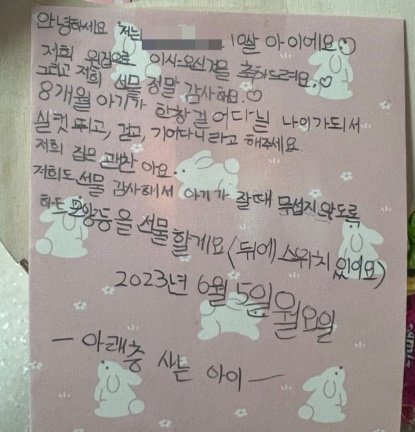 안녕하세요 저는 10살 아이에요
저희 윗집으로 이사오신걸 축하드려요.♡
그리고 저희 선물 정말 감사해요.♡
8개월 아기가 한창 걸어다닐 나이가 되서
실컷 뛰고, 걷고, 기어다니라고 해주세요.
저희 집은 괜찬아요.
저희도 선물 감사해서 아기가 잘때 무섭지 않도록
하트 모양등을 선물할게요 (뒤에 스위치 있어요)
2023년 6월 5일 월요일
- 아래층 사는 아이 -